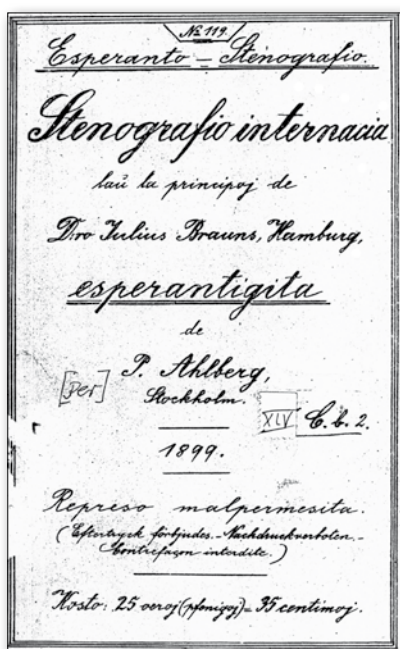 № 119.
Esperanto – Stenografio.
Stenografio internacia
laŭ la principoj de
D:ro Julius Brauns, Hamburg,
esperantigita
de
P. Ahlberg,
[per]
Stockholm.
XLV C. b. 2.
1899.
Represo malpermesita.
(Eftertryck förbjudes. – Nachdruck verboten. –
Contrefaçon interdite.)
Kosto: 25 oeroj (pfenigoj) = 35 centimoj.